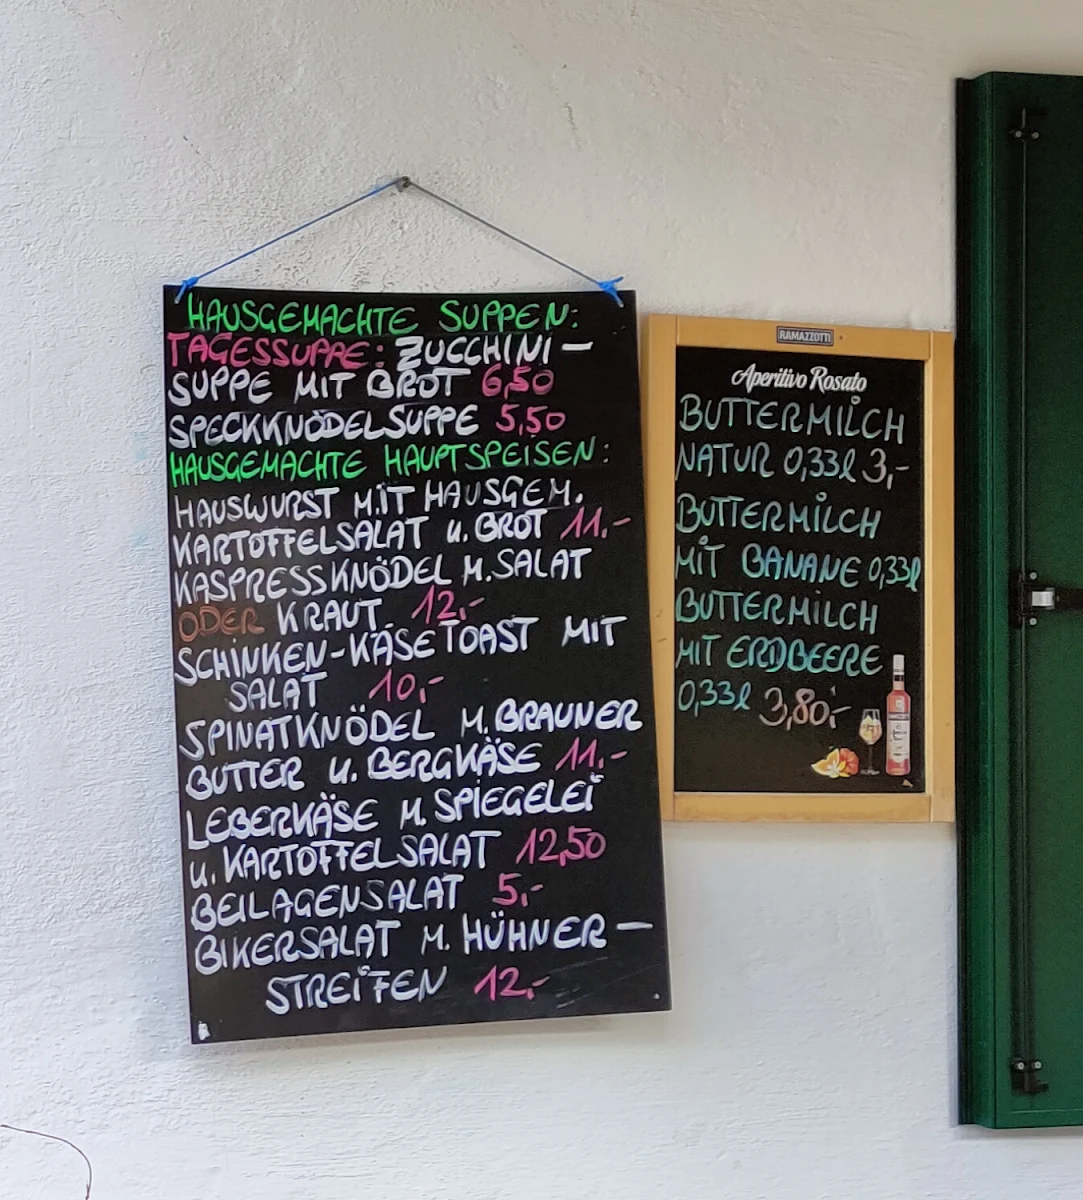 HAUSGEMACHTE SUPPEN:
TAGESSUPPE: ZUCCHINI-
SUPPE MIT BROT 6,50
SPECKKNÖDELSUPPE 5,50
HAUSGEMACHTE HAUPTSPEISEN:
HAUSWURST MIT HAUSGEM.
KARTOFFELSALAT u. BROT 11.-
KASPRESSKNÖDEL M. SALAT
ODER KRAUT 12,-
SCHINKEN-KÄSETOAST MIT
SALAT 10,-
SPINATKNÖDEL M. BRAUNER
BUTTER u. BERGKÄSE 11.-
LEBERKÄSE M. SPIEGELEI
u. KARTOFFELSALAT 12,50
BEILAGENSALAT 5,-
BIKERSALAT M. HÜHNER-
STREIFEN 12,-
RAMAZZOTTI
Aperitivo Rosato
BUTTERMILCH
NATUR 0,33l 3,-
BUTTERMILCH
MIT BANANE 0,33l
BUTTERMILCH
MIT ERDBEERE
0,33l 3,80,-